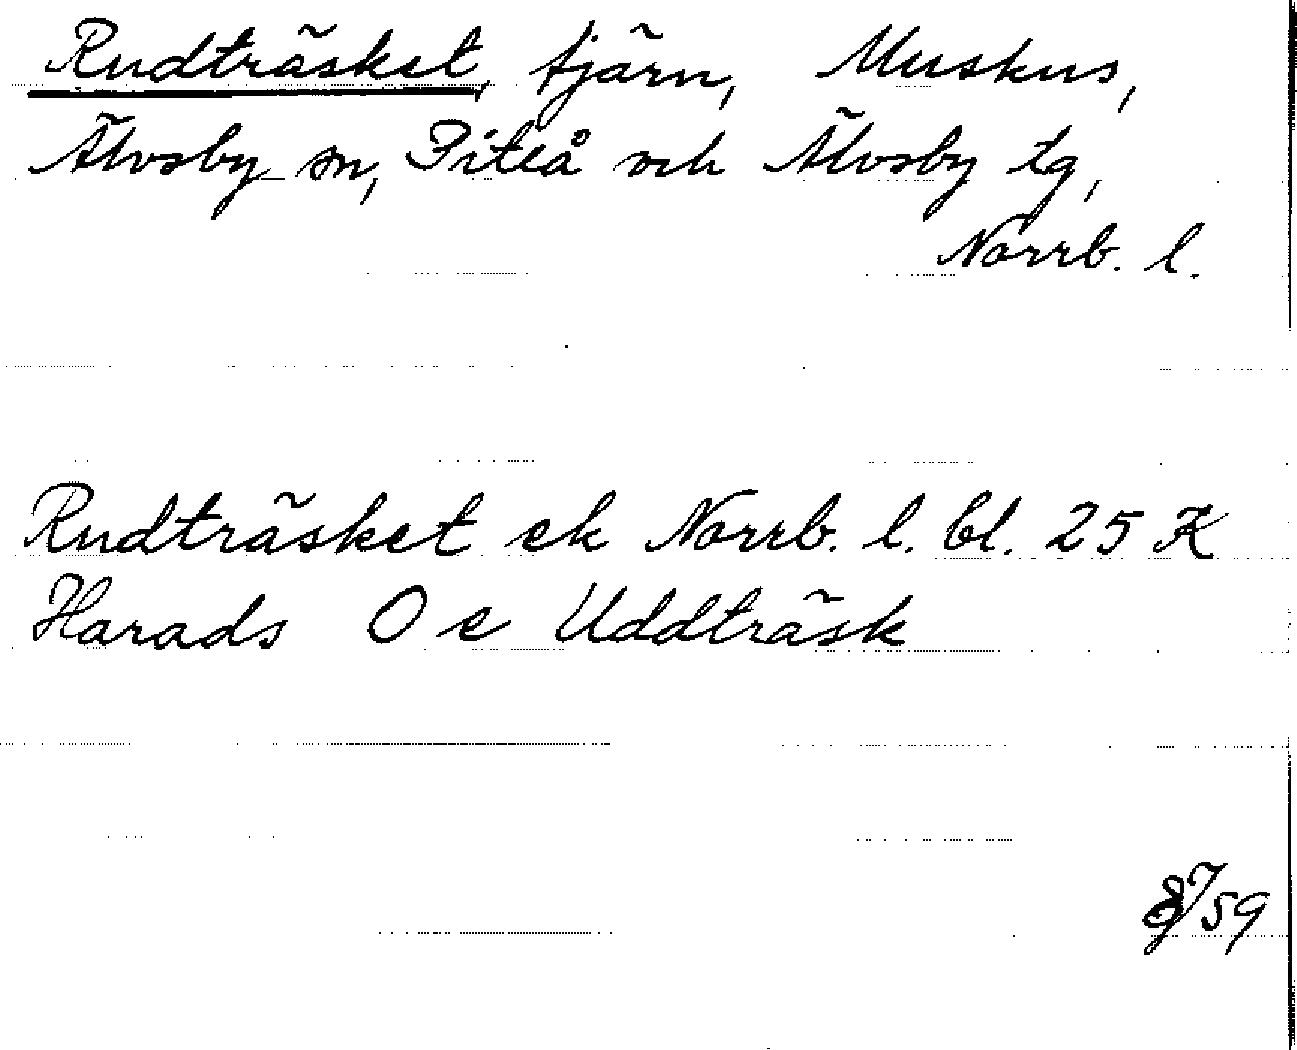 Rudträsket, tjärn, Muskus,
Älvsby sn, Piteå och Älvsby tg,
Norrb. l.
Rudträsket ek Norrb. l. bl. 25 K
Harads O e Uddträsk
59